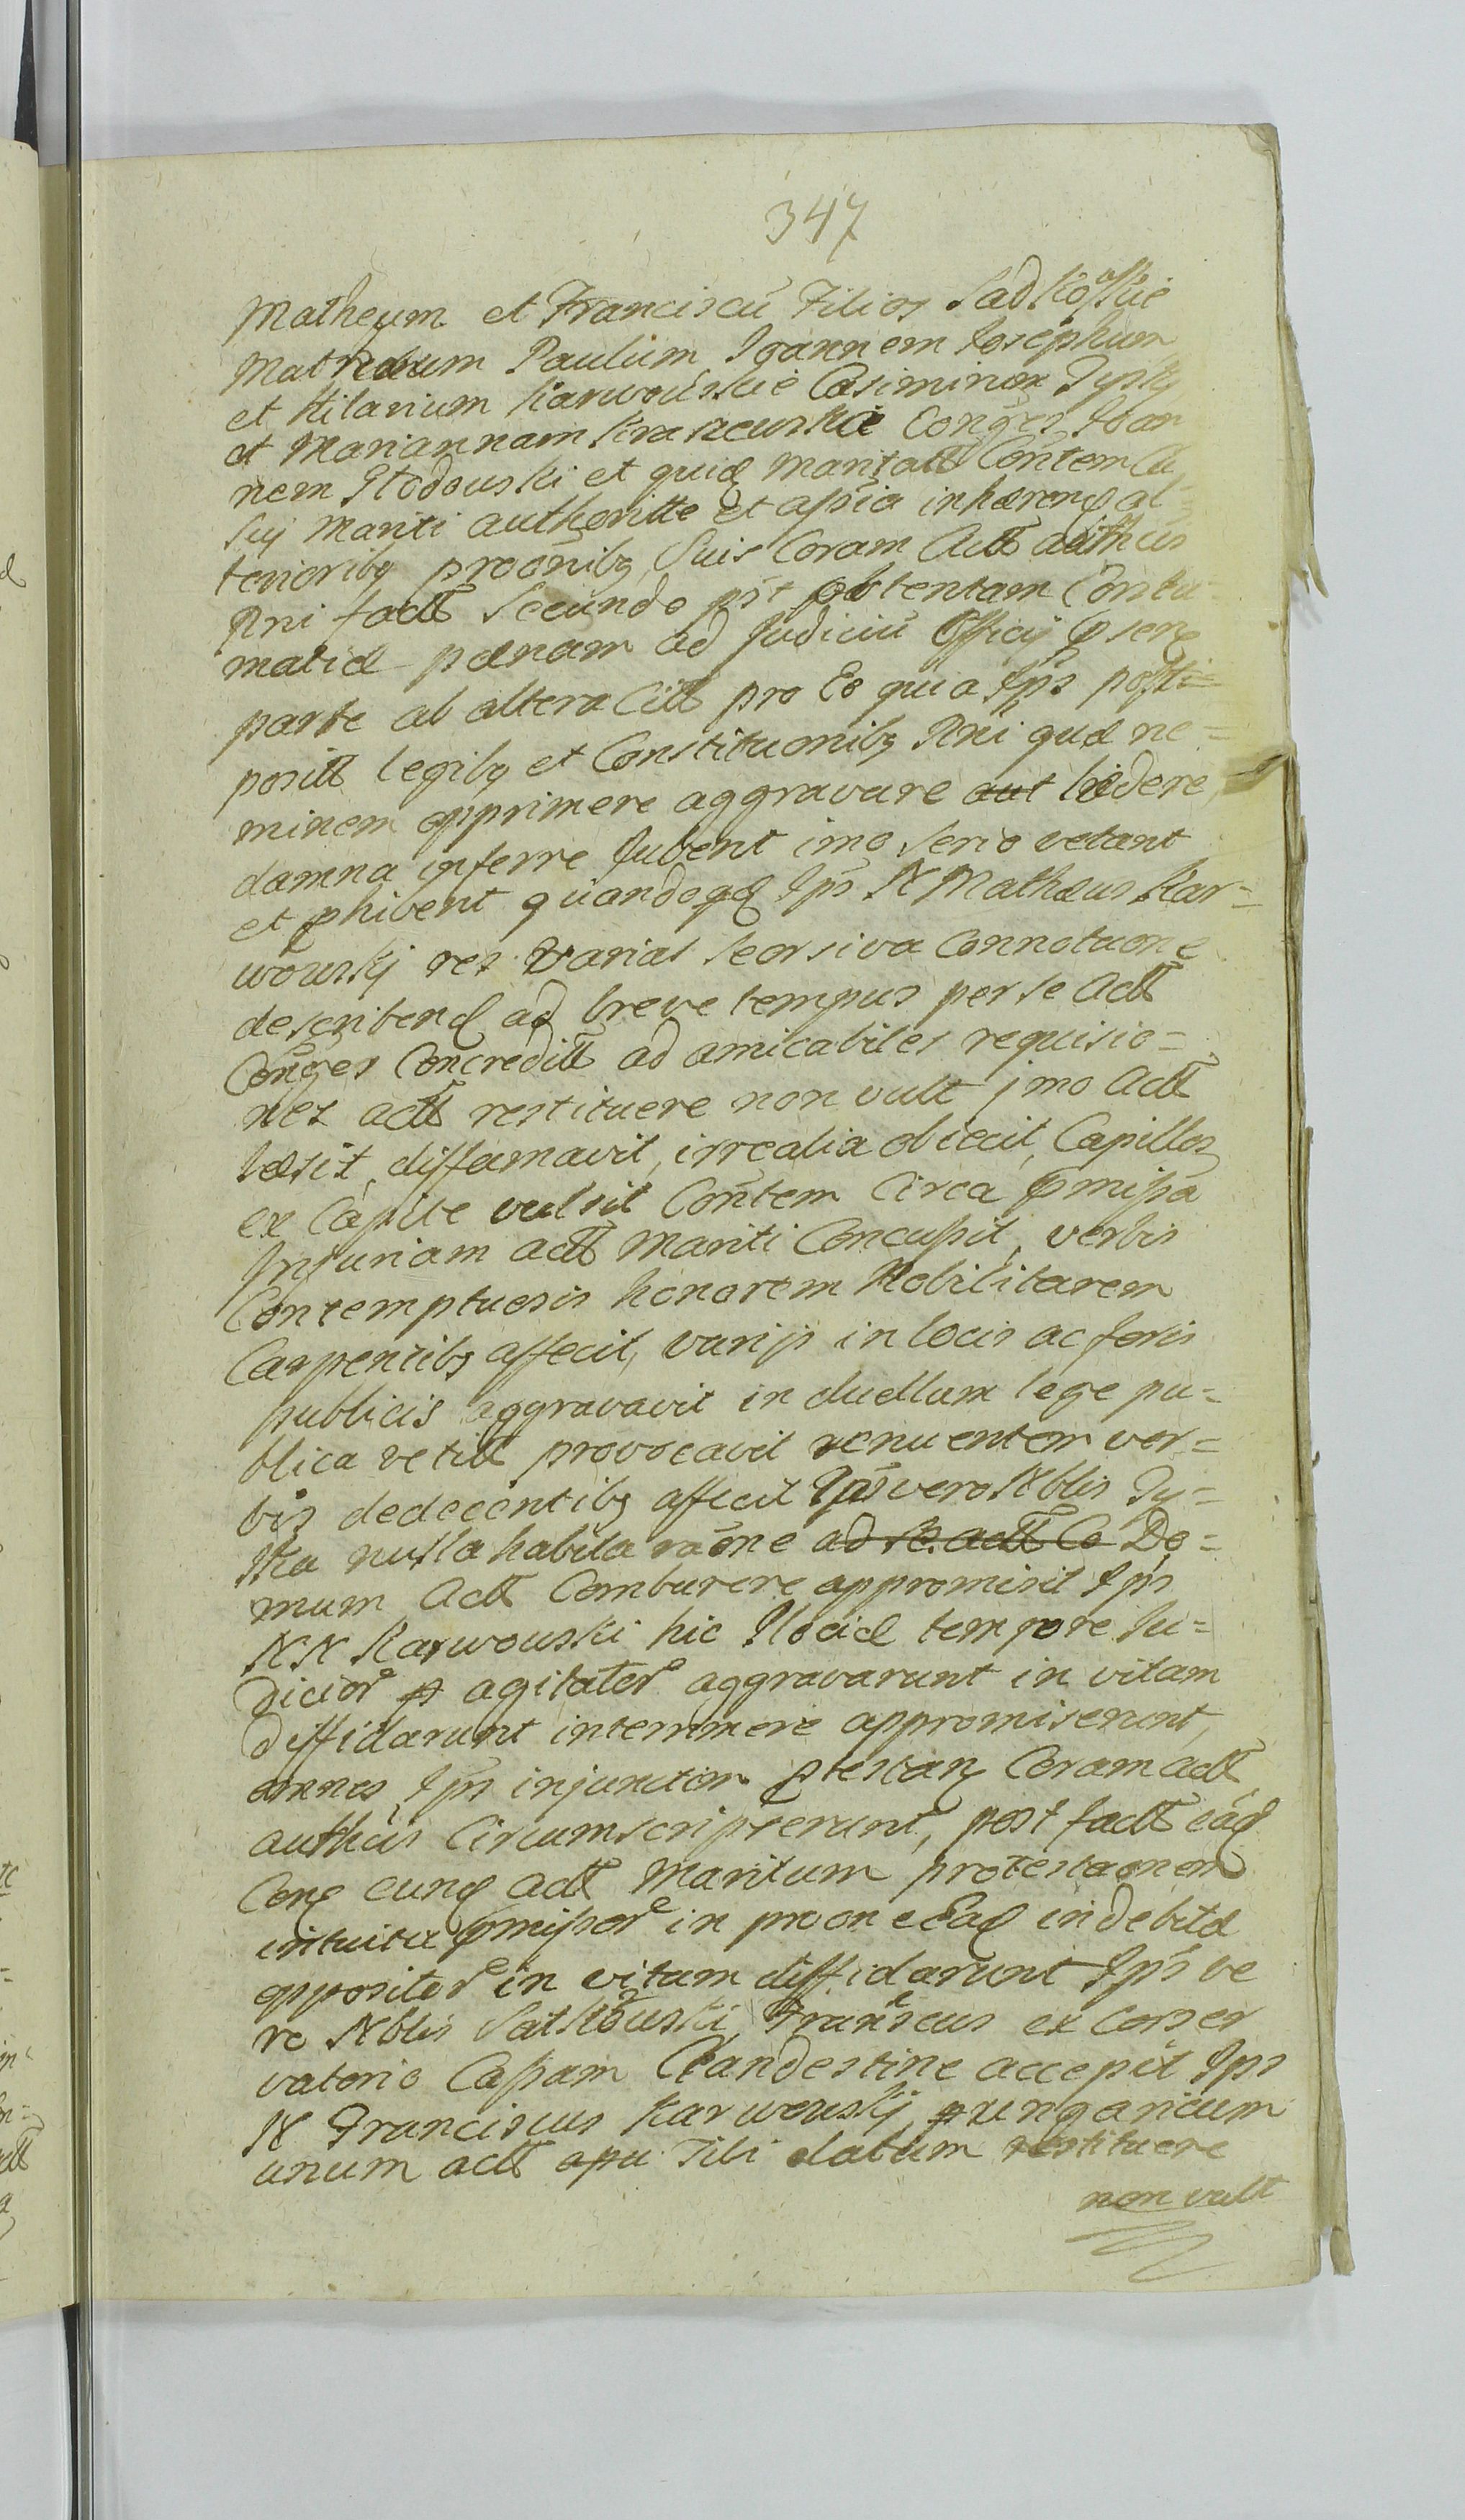 347
Matheum et Franciscū Filios Sadkoskie
Mathæum Paulum Joannem Josephum
et Hilarium Karwouskie Casimirum Tysky
et Mariannam Kraszeuskie Conges Joan
nem Stodouski et quidę Marit actt Contem cū
sui Mariti authoritte et apsia inhærenđ al=
terioribꝫ prōonibꝫ Suis Coram Actt authūs
Rni factt Secundo pst obtentam Contu=
matiæ pænam ad Judiciū Officij pseñ
parte ab altera Citt pro Eo quia Ips postt=
positt legibꝫ et Constitutionibꝫ Rni quæ ne=
minem opprimere aggravare aut lædere,
damna inferre Jubent imo serio vetant
et phibent quandoqđ Ips N Mathæus Kar=
wousky res varias seorsiva Connotaone
describenđ ad breve tempus per se Actt
Conges Concreditt ad amicabiles requisio=
nes actt restituere non vult jmo Actt
læsit, diffamavit, irrealia obiecit, Capillos
ex Capite vulsit Contem Circa pmissa
Injuriam actt Mariti Concussit, verbis
Contemptuosis honorem Nobilitarem
Carpentibꝫ affecit, varijs in locis ac foris
publicis aggravavit in duellum lege pu=
blica vetitt provocavit renuentem ver=
bis dedecentibꝫ affecit Ips vero Nblis Ty=
ska nulla habita raōne ad se actt Co Do=
mum Actt Comburere appromisit Ips
NN Karwouski hic Nociæ tempore Ju=
dicior agitator aggravarunt in vitam
diffidarunt interimere appromiserunt,
omnes Ips injunctim ptestanđ Coram actt
authūs Circumscripserunt, post factt eađ
Conđ eunđ actt Maritum protestaonem
intuitu pmissor in prōone Eađ indebitæ
oppositor in vitam diffidarunt Ips ve
ro Nblis Satkouski Francēscus ex Conser
vatorio Capam Clandestine accepit Ips
N Franciscus Karwousky, ungaricum
unum actt apu sibi datum restituere
non vult